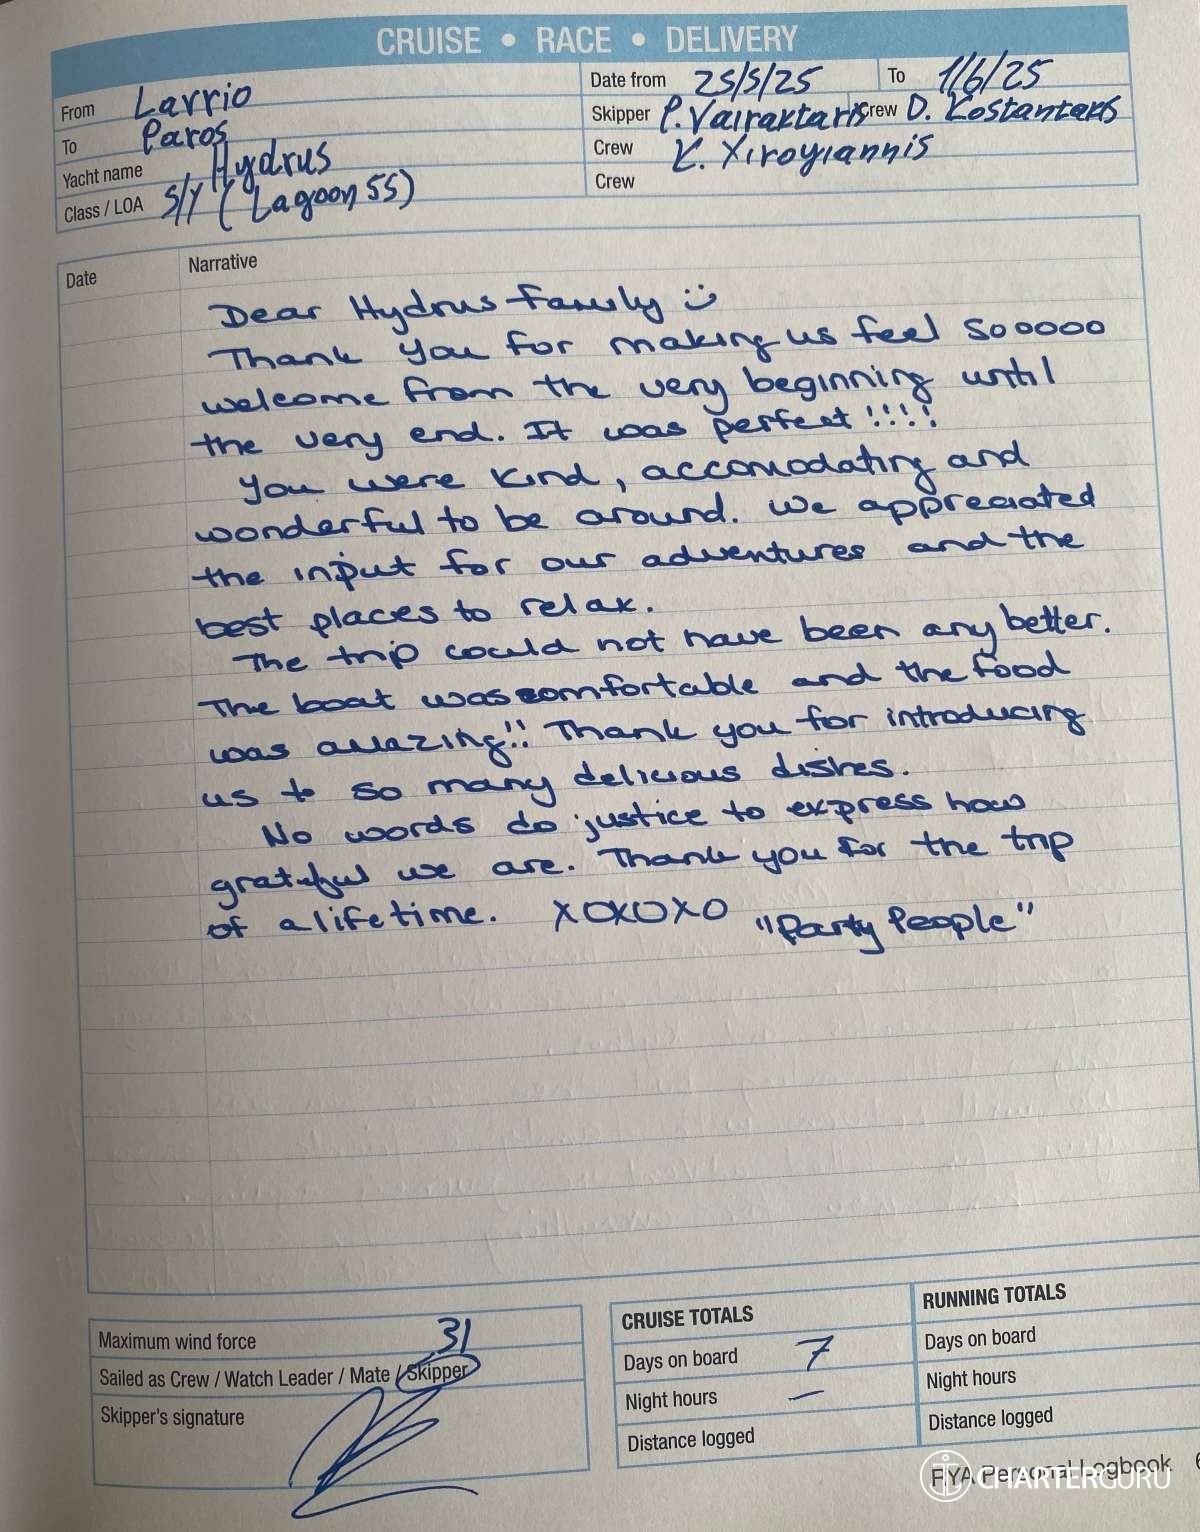 CRUISE • RACE • DELIVERY
From Lavrio
To Paros
Yacht name Hydrus
Class / LOA S/Y ( Lagoon 55)
Date from 25/5/25 To 1/6/25
Skipper P. Vairaktaris Crew D. Kostantakis
Crew K. Xirogiannis
Crew
Date Narrative
Dear Hydrus family :)
Thank you for making us feel sooooo
welcome from the very beginning until
the very end. It was perfect!!!!
You were kind, accomodating and
wonderful to be around. We appreciated
the input for our adventures and the
best places to relax.
The trip could not have been any better.
The boat was comfortable and the food
was amazing!! Thank you for introducing
us to so many delicious dishes.
No words do justice to express how
grateful we are. Thank you for the trip
of a lifetime. XOXOXO "Party People"
Maximum wind force 31
Sailed as Crew / Watch Leader / Mate / Skipper
Skipper's signature
CRUISE TOTALS
Days on board 7
Night hours —
Distance logged
RUNNING TOTALS
Days on board
Night hours
Distance logged
RYA Personal Logbook 6
CHARTERGURU